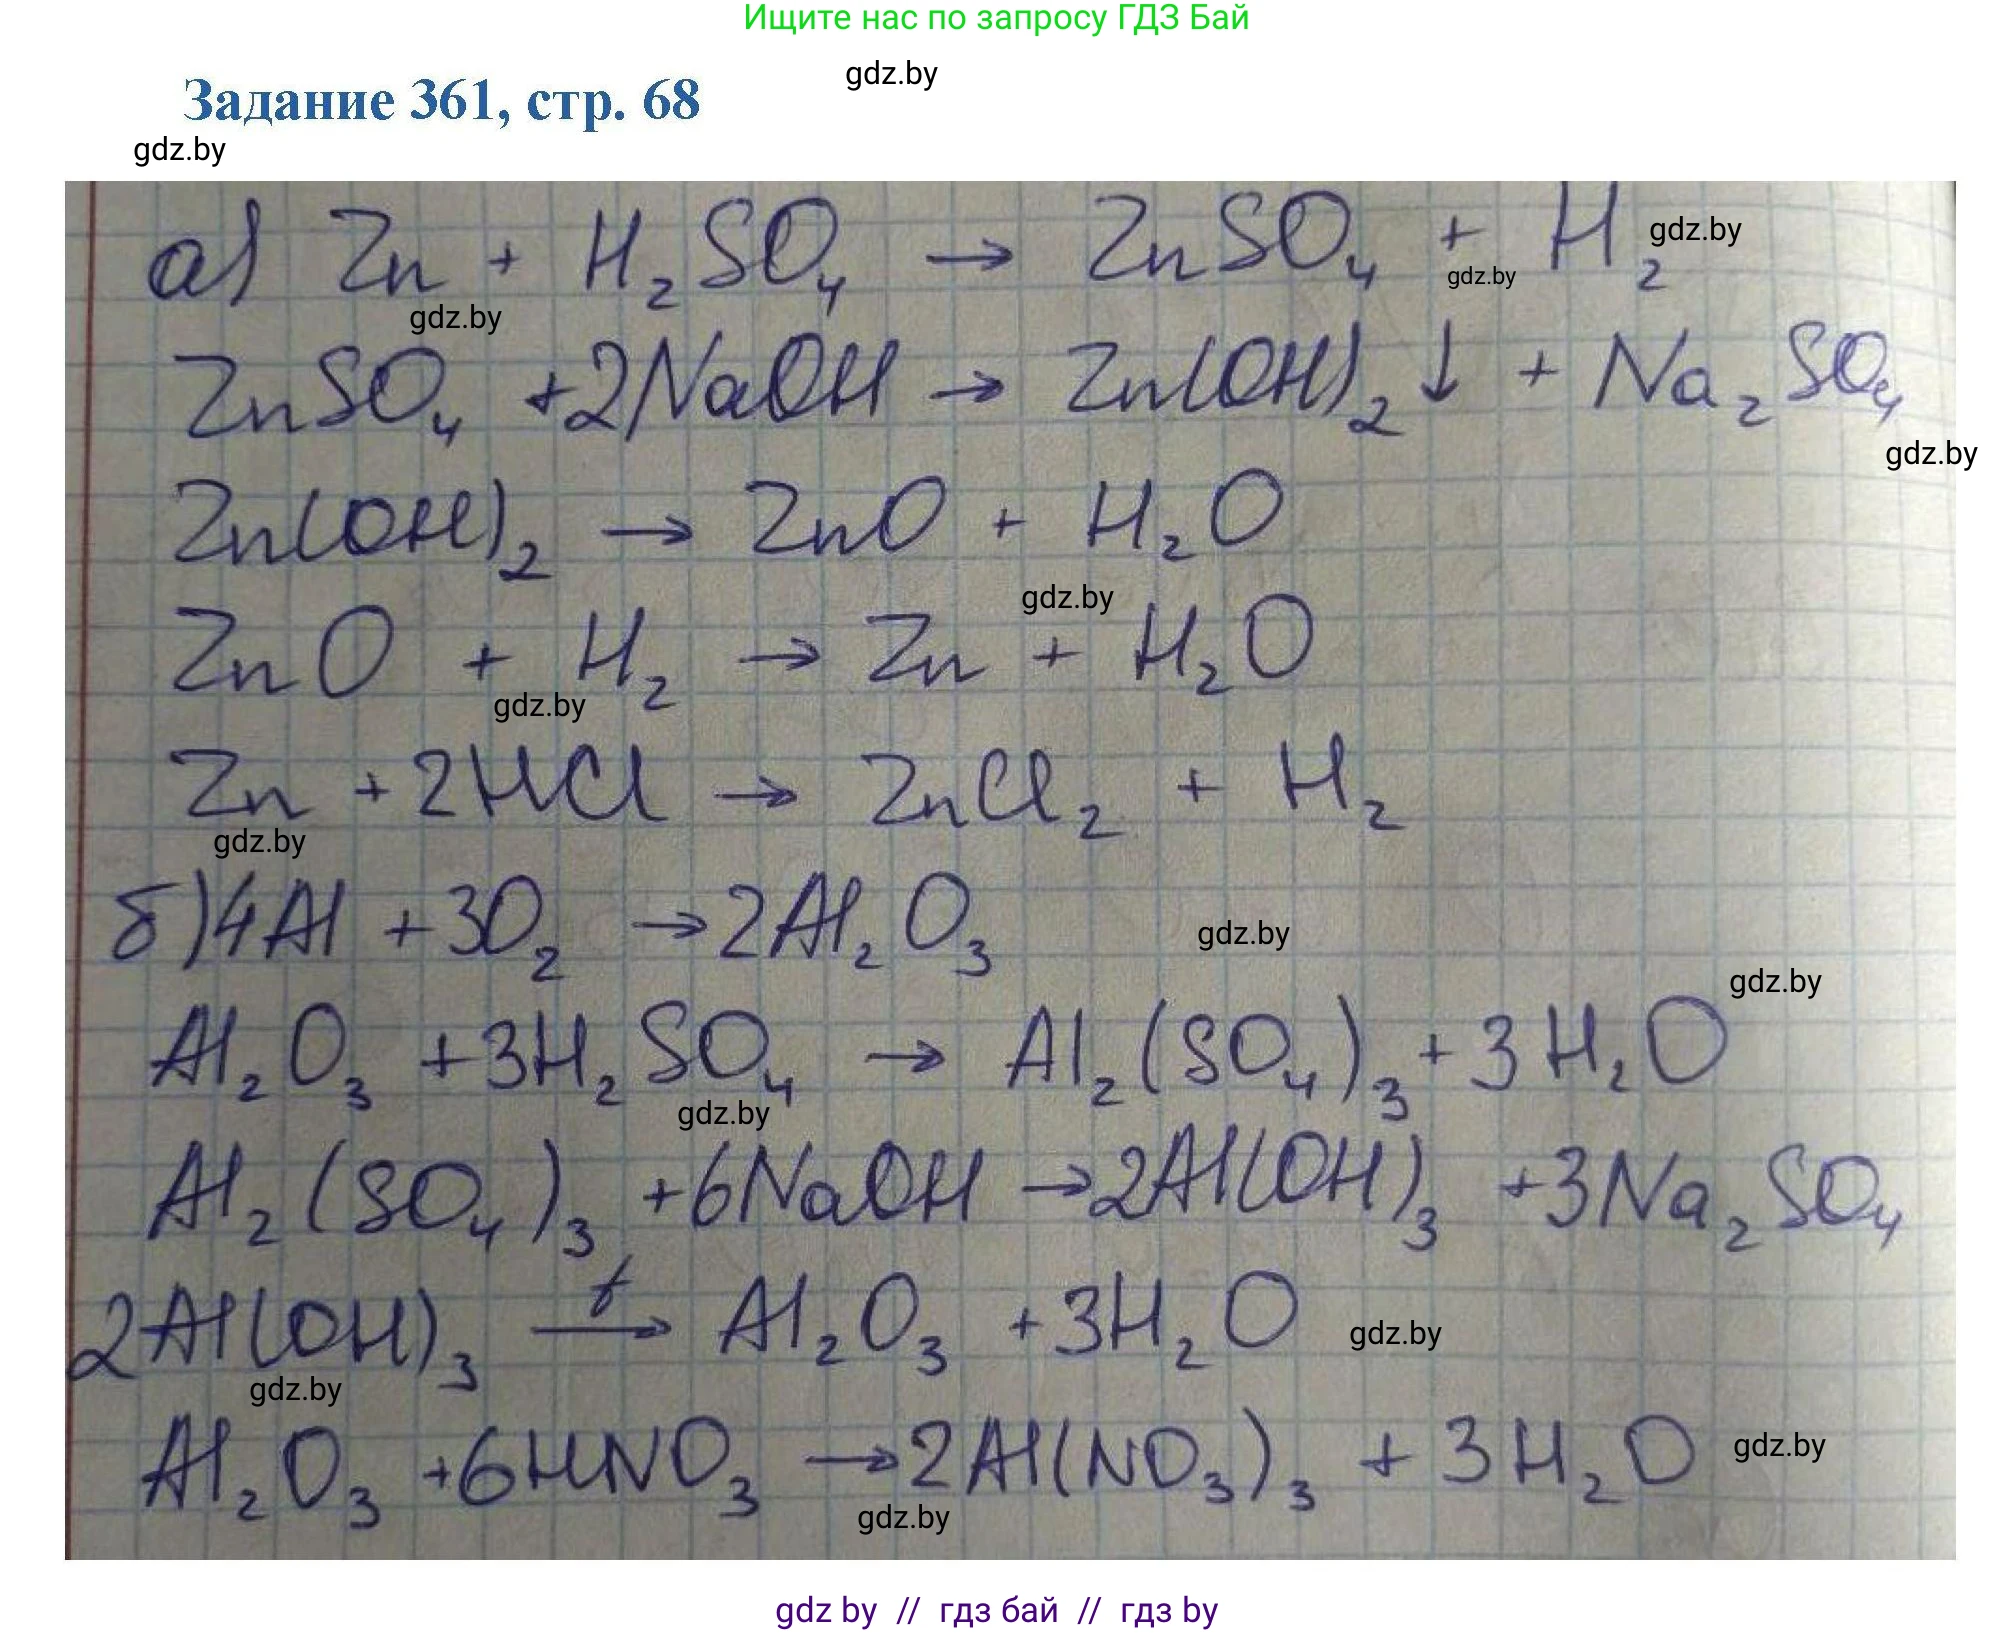 Ищите нас по запросу ГДЗ Бай
gdz.by
Задание 361, стр. 68
gdz.by
а) Zn + H₂SO₄ → ZnSO₄ + H₂ gdz.by
gdz.by
gdz.by
ZnSO₄ +2NaOH → Zn(OH)₂↓ + Na₂SO₄
gdz.by
Zn(OH)₂ → ZnO + H₂O
gdz.by
ZnO + H₂ → Zn + H₂O
gdz.by
Zn +2HCl → ZnCl₂ + H₂
gdz.by
б)4Al +3O₂ →2Al₂O₃
gdz.by
gdz.by
Al₂O₃ +3H₂SO₄ → Al₂(SO₄)₃+3H₂O
gdz.by
Al₂(SO₄)₃ +6NaOH →2Al(OH)₃ +3Na₂SO₄
2Al(OH)₃ t→ Al₂O₃ +3H₂O
gdz.by
gdz.by
Al₂O₃ +6HNO₃ →2Al(NO₃)₃ + 3H₂O gdz.by
gdz.by
gdz by // гдз бай // гдз by